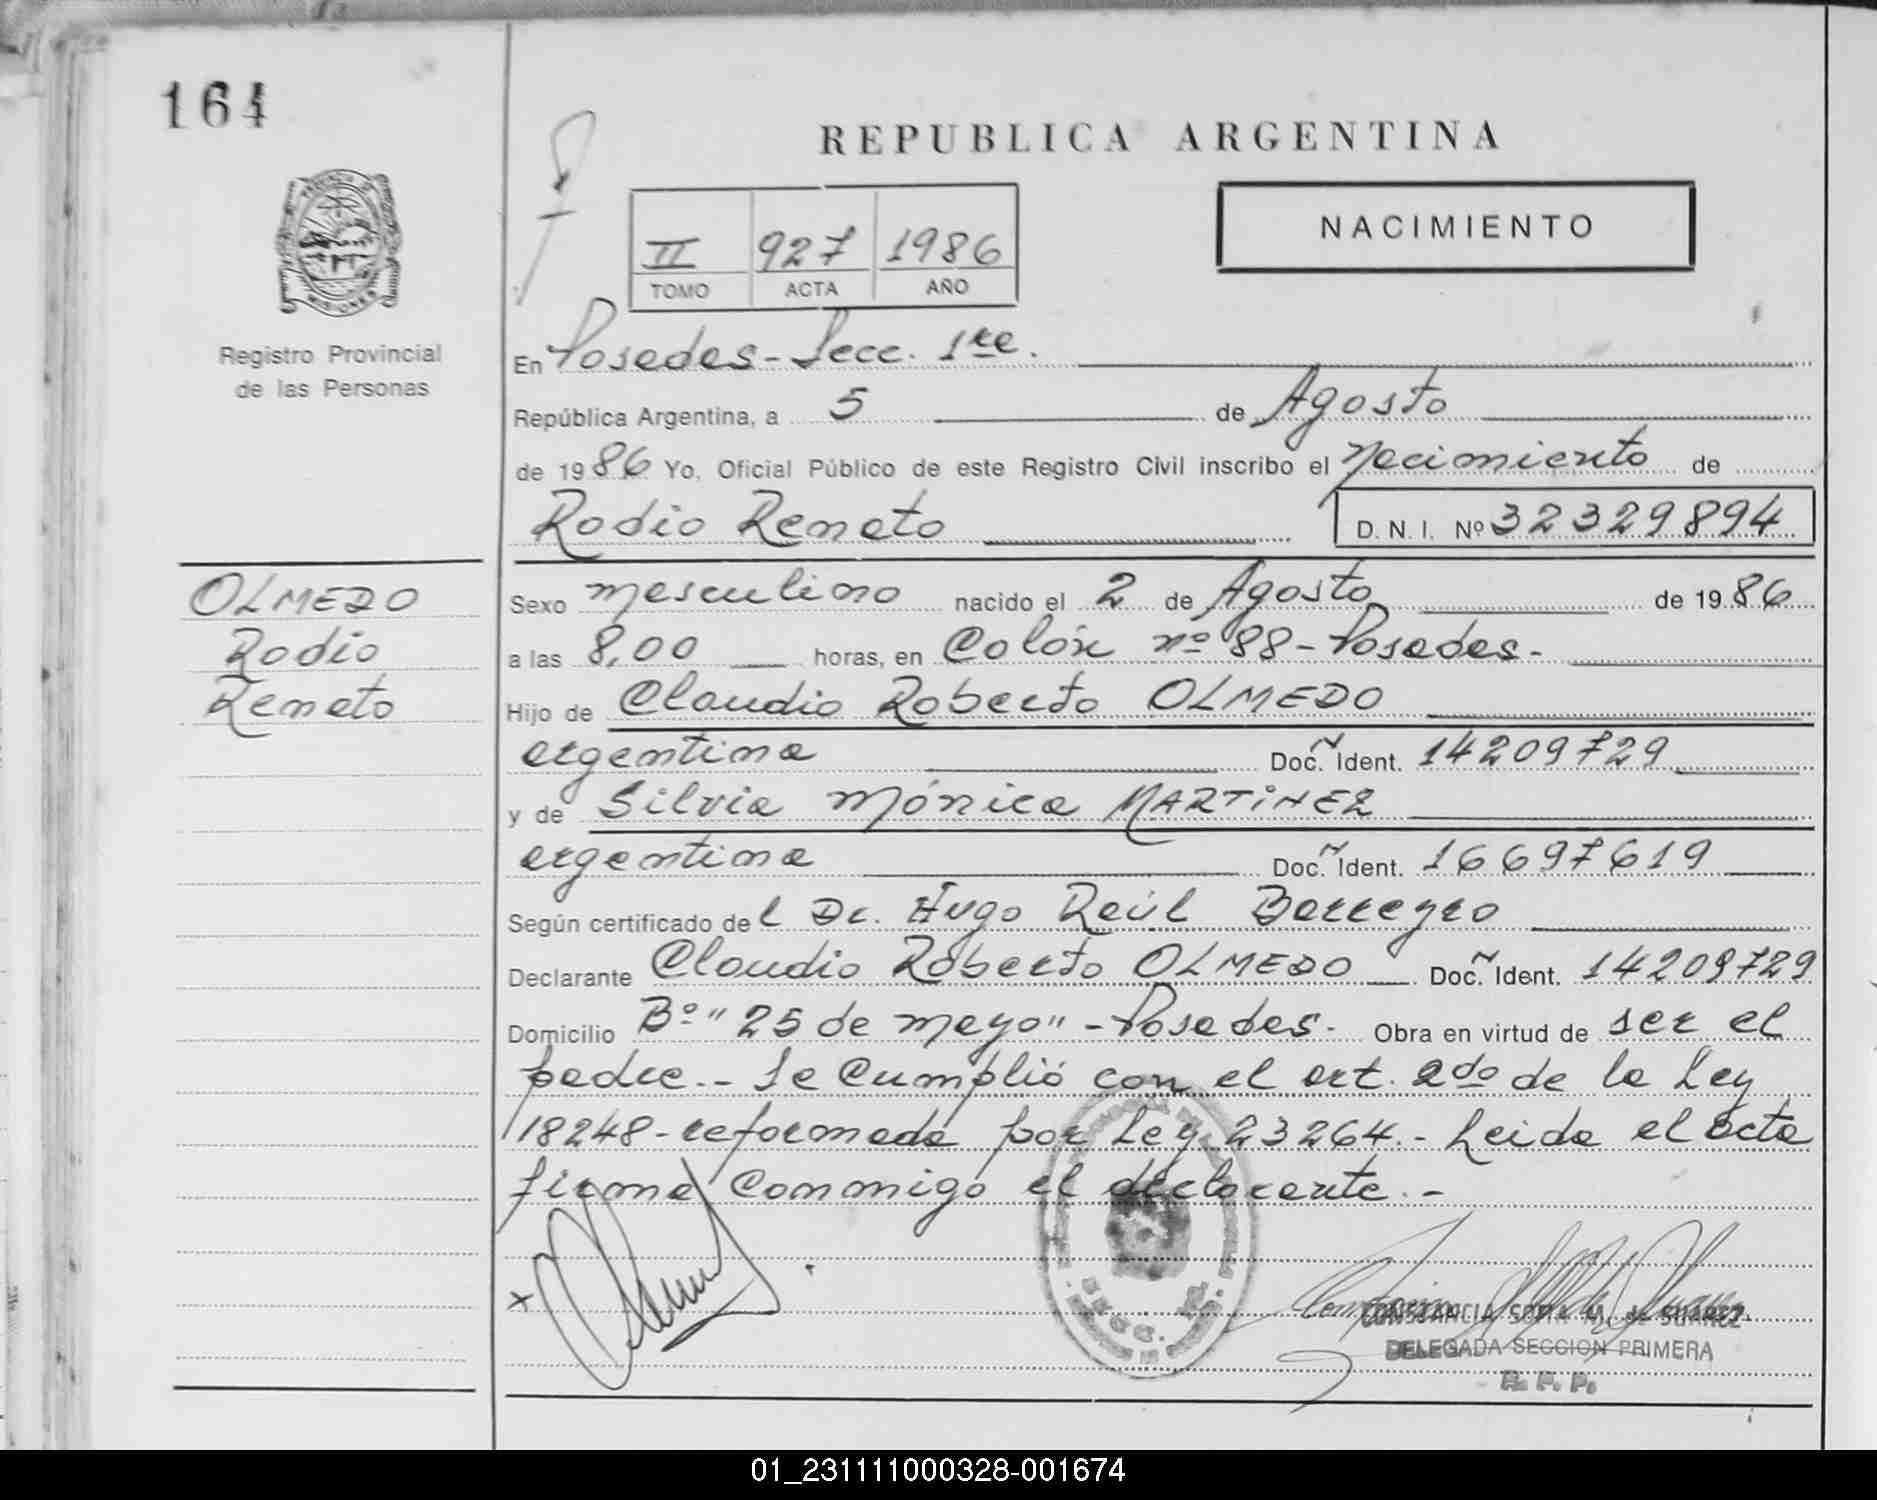 164
REPUBLICA ARGENTINA
NACIMIENTO
II 927 1986
TOMO ACTA AÑO
Registro Provincial
de las Personas
En Posadas - Secc. 1ra.
República Argentina, a 5 de Agosto
de 1986 Yo, Oficial Público de este Registro Civil inscribo el Nacimiento de
Rodio Renato D. N. I. Nº 32329894
OLMEDO
Rodio
Renato
Sexo masculino nacido el 2 de Agosto de 1986
a las 8,00 horas, en Colón nº 88 - Posadas -
Hijo de Claudio Roberto OLMEDO
argentina Doc. Ident. 14209729
y de Silvia Mónica MARTINEZ
argentina Doc. Ident. 16697619
Según certificado del Dr. Hugo Raúl Barreyro
Declarante Claudio Roberto OLMEDO Doc. Ident. 14209729
Domicilio Bº "25 de mayo" - Posadas - Obra en virtud de ser el
padre. - Se Cumplió con el art. 2do de la Ley
18248 - reformada por Ley 23264. - Leida el acta
firma conmigo el declarante. -
CONSTANCIA SOFIA M. de SUAREZ
DELEGADA SECCION PRIMERA
R. P. P.
01_231111000328-001674